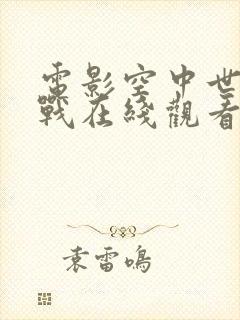 電影空中世
戰在綫觀看
袁雷鳴